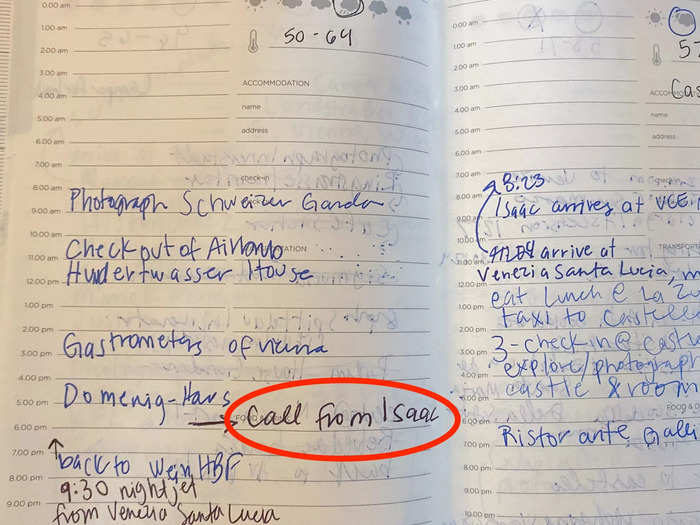 0.00 am
1.00 am
2.00 am
3.00 am
4.00 am
5.00 am
6.00 am
7.00 am
8.00 am
9.00 am
10.00 am
11.00 am
12.00 pm
1.00 pm
2.00 pm
3.00 pm
4.00 pm
5.00 pm
6.00 pm
7.00 pm
8.00 pm
9.00 pm
50-64
ACCOMMODATION
name
address
check-in
Photograph Schweizer Garden
Checkout of Airbnb
Hundertwasser House
Gastrometers of
Domenig-Haus
→ Call from Isaac
↑back to Wein HBF
9:30 nightjet
from Venezia Santa Lucia
0.00 am
1.00 am
2.00 am
3.00 am
4.00 am
5.00 am
6.00 am
7.00 am
8.00 am
9.00 am
10.00 am
11.00 am
12.00 pm
1.00 pm
2.00 pm
3.00 pm
4.00 pm
5.00 pm
6.00 pm
7.00 pm
8.00 pm
9.00 pm
name
address
8:23
Isaac arrives at VCE
arrive at
TRANSPORT
Venezia Santa Lucia,
eat lunch @ La
taxi to
3-check-in@
explore/photograph
castle & room
FOOD &
Ristorante